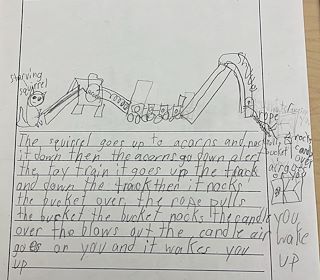 starving
squirrel
rope
The squirrel goes up to acorns and rocks
it down then the acorns go down
the toy train it goes up the track
and down the track then it rocks
the bucket over the rope pulls
the bucket the bucket rocks the candle
over the blows out the candle air
goes on you and it wakes you
up
rock
bucket
candle
over
you
wake
up